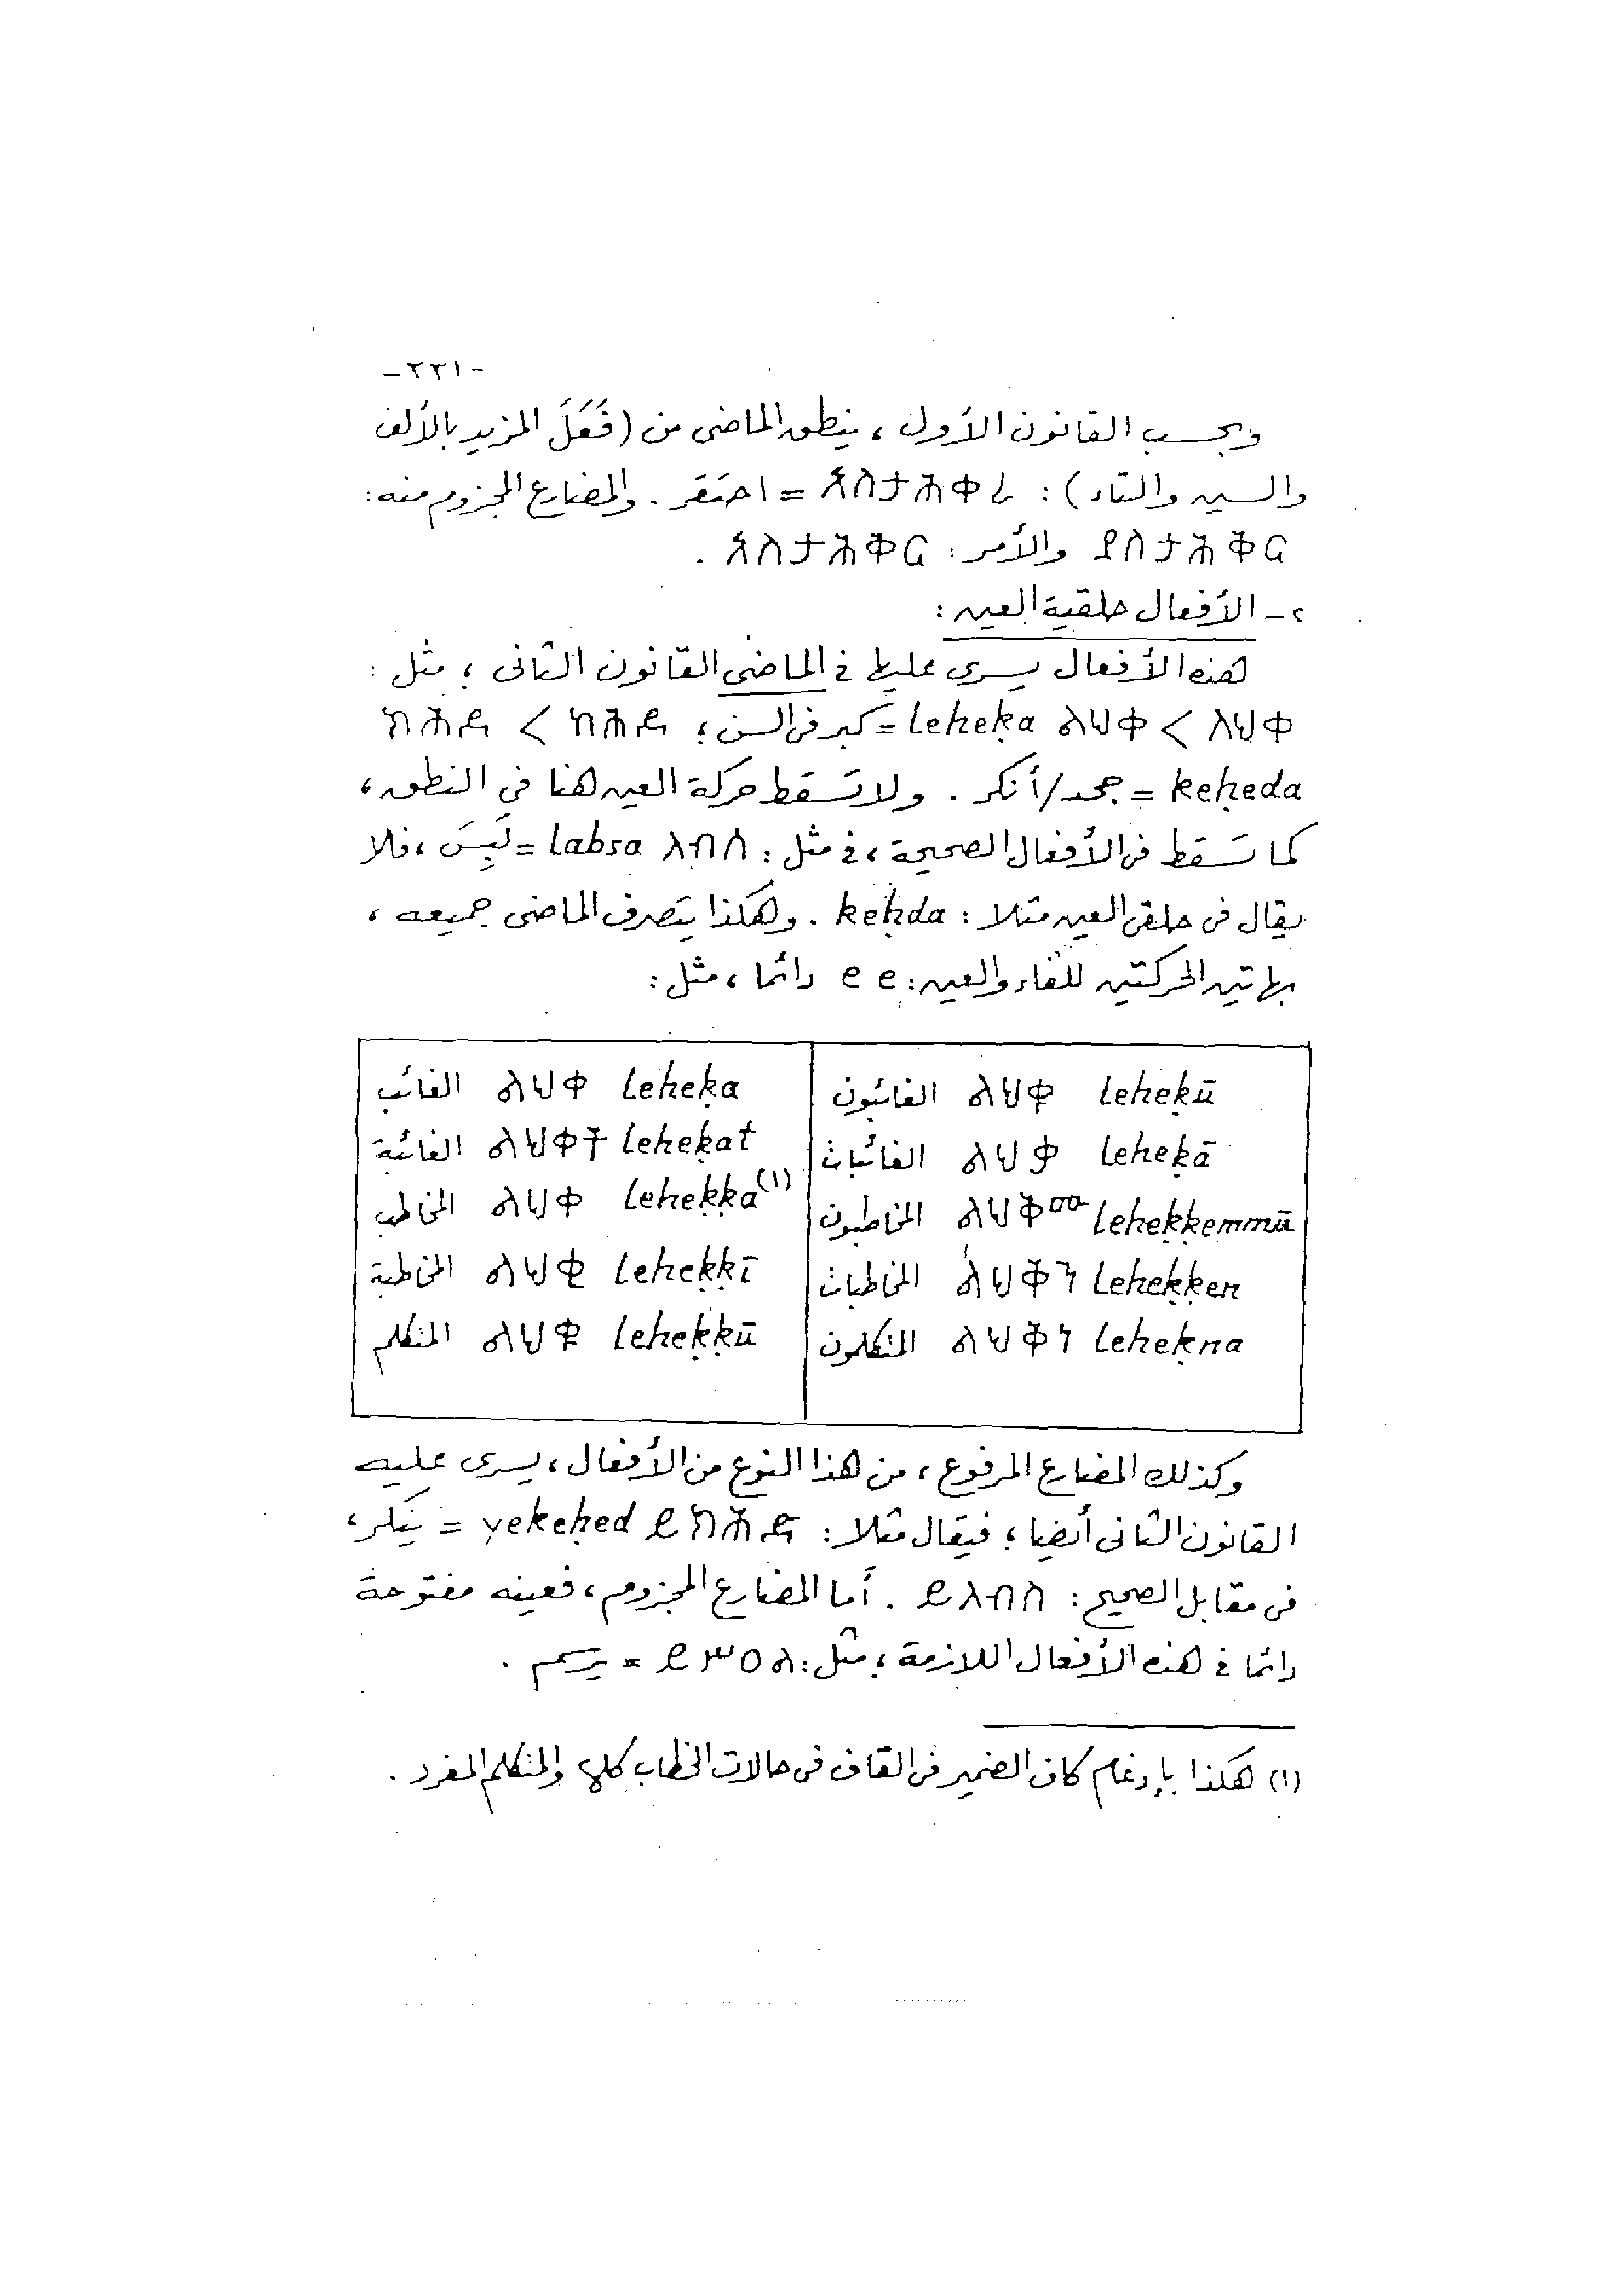 -٢٢١-
وبحسب القانون الأول ، ينطق الماضى من (فَعَلَ المزيد بالألف
والسين والتاء) : አስታሕቀረ = احتقر . والمضارع المجزوم منه:
ያስታሕቅር والأمر : አስታሕቅር .
٢ - الأفعال حلقية العين :
هذه الأفعال يسرى عليها فى الماضى القانون الثانى ؛ مثل :
ለህቀ > ልህቀ leheḳa = كبر فى السن ؛ ከሕደ > ክሕደ
keḥeda = جحد / أنكر . ولا تسقط حركة العين هنا فى النطق ،
كما تسقط فى الأفعال الصحيحة ، فى مثل : ለብሰ labsa = لَبِسَ ، فلا
يقال فى حلقى العين مثلا : keḥda . وهكذا يتصرف الماضى جميعه ،
بهاتين الحركتين للفاء والعين : e e دائما ، مثل :
الغائب ልህቀ leheḳa الغائبون ልህቁ leheḳū
الغائبة ልህቀት leheḳat الغائبات ልህቃ leheḳā
المخاطب ልህቀ leheḳḳa (١) المخاطبون ልህቅመ leheḳḳemmū
المخاطبة ልህቂ leheḳḳī المخاطبات ልህቅን leheḳḳen
المتكلم ልህቁ leheḳḳū المتكلمون ልህቅነ leheḳna
وكذلك المضارع المرفوع ، من هذا النوع من الأفعال ، يسرى عليه
القانون الثانى أيضا ؛ فيقال مثلا : ይክሕድ yekeḥed = ينكر ،
فى مقابل الصحيح : ይለብስ . أما المضارع المجزوم ، فعينه مفتوحة
دائما فى هذه الأفعال اللازمة ؛ مثل : ይሥዐል = يرسم .
(١) هكذا بإدغام كاف الضمير فى القاف فى حالات الخطاب كلها والمتكلم المفرد .